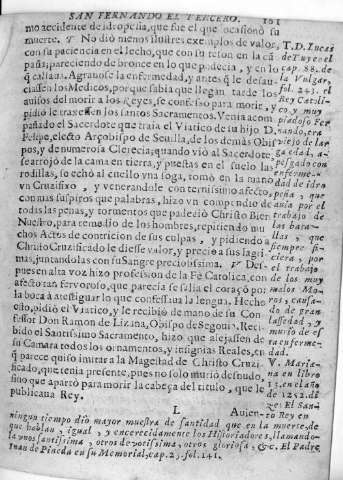 SAN FERNANDO EL TERCERO. 101
mo accidente de Idropesia, que fue el que ocasionó su
muerte. No dió menos ilustres exemplos de valor,
con su paciencia en el lecho, que con su teson en la
paña; pareciendo de bronce en lo que padecia, y en lo
q̃ callaua. Agrauose la enfermedad, y antes q̃ le desau-
ciassen los Medicos, porque sabia que llegan tarde los
auisos del morir a los Reyes, se confesso para morir, y
pidió le traxessen los santos Sacramentos. Venia acom-
pañado el Sacerdote que traia el Viatico de su hijo D.
Felipe, electo Arçobispo de Seuilla, de los demàs Obis-
pos, y de numerosa Clerecia; quando viò al Sacerdote,
se arrojò de la cama en tierra, y puestas en el suelo las
rodillas, se echò al cuello vna soga, tomó en la mano
vn Cruzifixo, y venerandole con ternissimo afecto,
con mas suspiros que palabras, hizo vn compendio de
todas las penas, y tormentos que padeciò Christo Bien
Nuestro, para remedio de los hombres, repitiendo mu
chos Actos de contricion de sus culpas, y pidiendo a
Christo Cruzificado le diesse valor, y precio a sus lagri-
mas, juntandolas con su Sangre preciosissima. Des-
pues en alta voz hizo profession de la Fè Catolica, con
afecto tan fervoroso, que parecia se salia el coraçõ por
la boca à atestiguar lo que confessaua la lengua. Hecho
esto, pidiò el Viatico, y le recibiò de mano de su Con-
fessor Don Ramon de Lizana, Obispo de Segouia. Reci-
bido el Santissimo Sacramento, hizo que alejassen de
su Camara todos los ornamentos, y insignias Reales, en
q̃ parece quiso imitar a la Magestad de Christo Cruzi-
ficado, que tenia presente, pues no solo muriò desnudo,
sino que apartò para morir la cabeça del titulo, que le
publicaua Rey.
T. D. Lucas
de Tuy en el
cap. 88. de
la Vulgar,
fol. 243. el
Rey Catoli-
co, y muy
piadoso Fer
nando, era
viejo de lar-
ga edad, a-
pesgado con
enferme-
dad de idro
pesia, que
auia por el
trabajo de
las bata-
llas, que
siempre fi-
ciera, y por
el trabajo
de los muy
malos Mo-
ros, causa-
do de gran
lassedad, y
muriò de es
ta enferme-
dad.
V. Maria-
na en libro
13. en el año
de 1252. di-
ze: El San-
to Rey en
L Auien-
ningun tiempo diò mayor muestra de santidad que en la muerte, de
que hablan, igual, y encarecidamente los Historiadores, llamando-
la vnos santissima, otros devotissima, otros gloriosa, &c. El Padre
Iuan de Pineda en su Memorial, cap. 25. fol. 141.